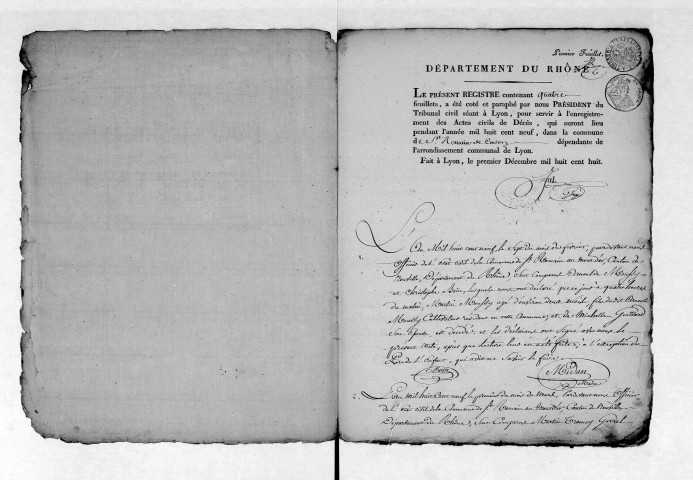 Premier Feuillet.
DÉPARTEMENT DU RHÔNE
LE PRÉSENT REGISTRE contenant quatre
feuillets, a été coté et paraphé par nous PRÉSIDENT du
Tribunal civil séant à Lyon, pour servir à l'enregistre-
ment des Actes civils de Décès, qui auront lieu
pendant l'année mil huit cent neuf, dans la commune
de St. Romain de Couzon dépendante de
l'arrondissement communal de Lyon.
Fait à Lyon, le premier Décembre mil huit cent huit.
L'an Mil huit cent neuf, le sept du mois de février, pardevant nous
officier de l'état civil de la Commune de St Romain au mont d'or, Canton de
Neuville, Département du Rhône, sont Comparus
et Christophe lesquels nous ont déclaré que ce jour à quatre heures
du matin, Martin âgé d'environ douze fils du dit
Cultivateur résidant en cette Commune, et de Michelle
Son épouse, est décédé; et les déclarants ont signé avec nous le
présent acte, après que lecture leur en a été faite, à l'exception du
Père de l'enfant, qui a dit ne savoir le faire.
Midan
Maire
L'an mil huit Cent neuf, le premier du mois de mars, Pardevant nous Officier
de l'état civil de la Commune de St Romain au mont d'or, Canton de Neuville,
Département du Rhône, sont Comparus Martin